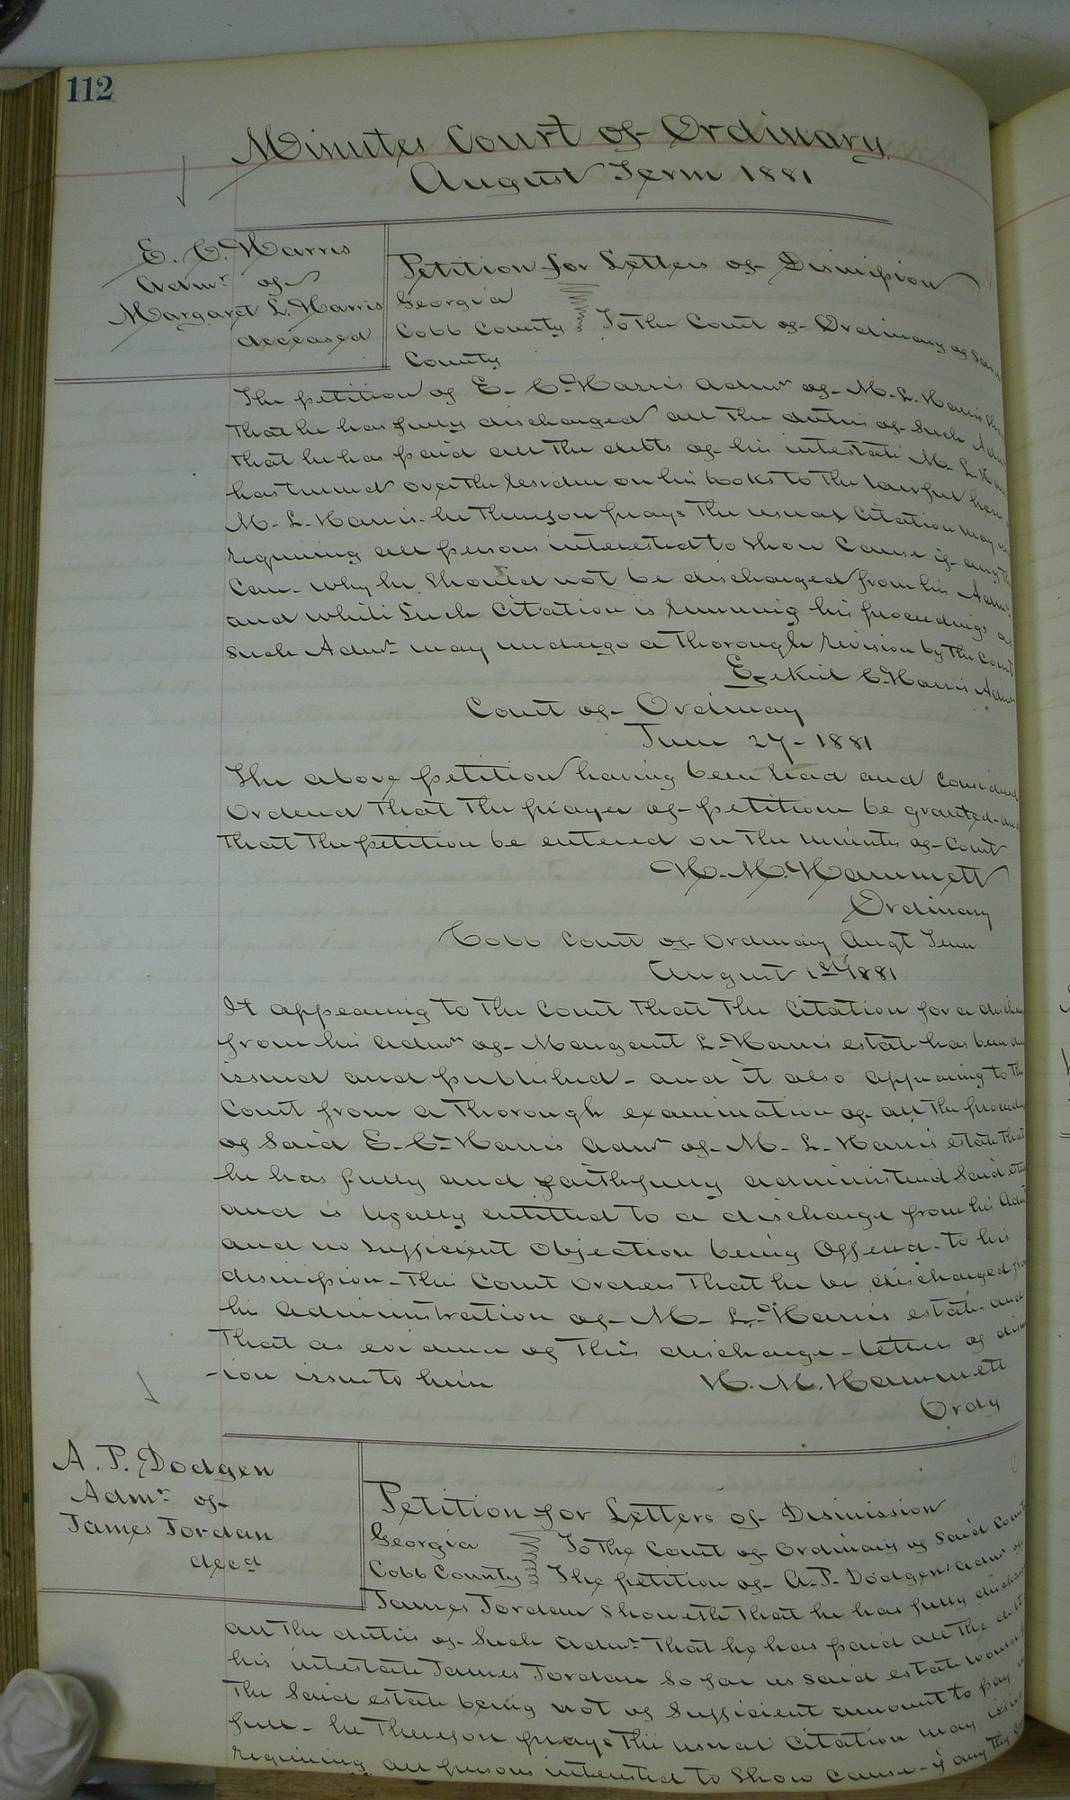 112
Minutes Court of Ordinary
August Term 1881
E. C. Harris
Admr. of
Margaret L. Harris
deceased
Petition for Letters of Dismission
Georgia
Cobb County To the Court of Ordinary of Said
County
The petition of E. C. Harris Admr of M. L. Harris
that he has fully discharged all the duties of such Admr
that he has paid all the debts of his intestate M. L.
has turned over the residue on his books to the lawful heirs
M. L. Harris. he therefore prays the usual Citation may
requiring all persons interested to show cause if any
can. why he should not be discharged from his Admr.
and while such citation is running his proceedings as
such Admr. may undergo a thorough revision by the Court
Ezekiel C. Harris Admr
Court of Ordinary
June 27 - 1881
The above petition having been read and Considered
Ordered that the prayer of petition be granted and
that the petition be entered on the minutes of Court
H. M. Hammett
Ordinary
Cobb Court of Ordinary Augt Term
August 1st 1881
It appearing to the Court that the citation for a
from his admr of Margaret L. Harris estate has been
issued and published - and it also appearing to the
Court from a thorough examination of all the
of said E. C. Harris Admr of M. L. Harris estate that
he has fully and faithfully administered said
and is legally entitled to a discharge from his Admr
and no sufficient objection being offered to his
dismission - this Court orders that he be discharged from
his administration of M. L. Harris estate - and
that as evidence of this discharge - letters of
-ion issue to him
H. M. Hammett
Ordy
A. P. Dodgen
Admr. of
James Jordan
decd
Petition for Letters of Dismission
Georgia To the Court of Ordinary of said County
Cobb County The petition of A. P. Dodgen admr of
James Jordan Showeth that he has fully
all the duties of such admr. that he has paid all the
his intestate James Jordan so far as said estate would
the said estate being not of sufficient amount to pay in
full - he therefore prays the usual citation may
requiring all persons interested to show cause - if any they